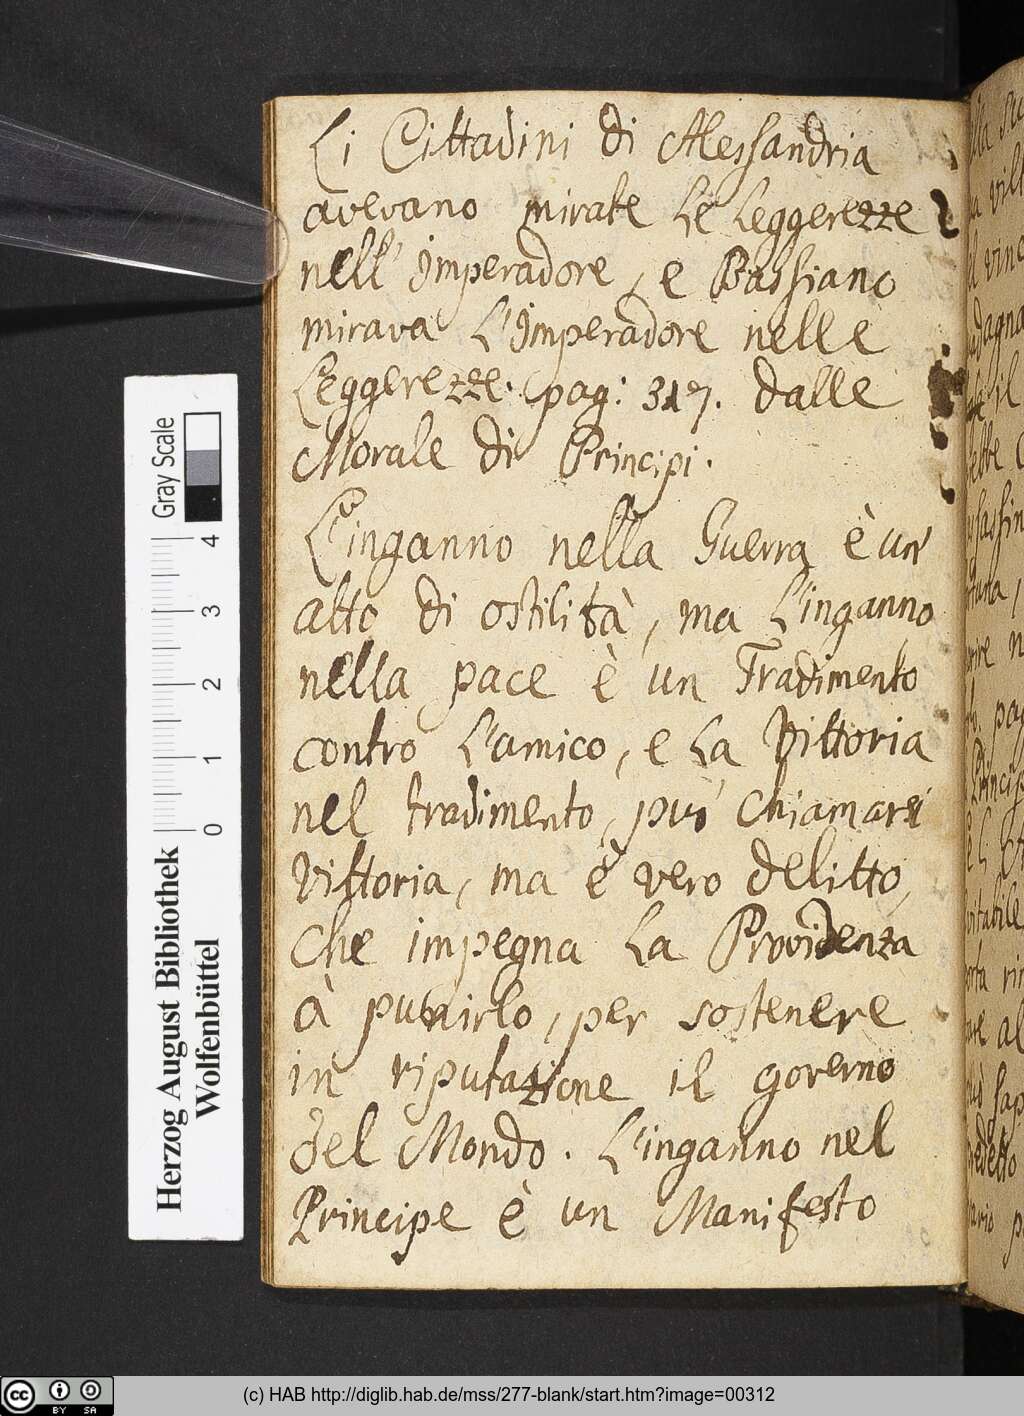 Li Cittadini di Alessandria
avevano mirate Le Leggerezze
nell' Imperadore, e Bassiano
mirava L'Imperadore nelle
Leggerezze. pag: 317. dalle
Morale di Principi.
L'inganno nella Guerra è un'
atto di ostilità, ma L'inganno
nella pace è un Tradimento
contro L'amico, e La Vittoria
nel tradimento, può chiamarsi
Vittoria, ma è vero delitto,
che impegna La Providenza
à punirlo, per sostenere
in riputazione il governo
del Mondo. L'inganno nel
Principe è un Manifesto
Gray Scale
0 1 2 3 4
Herzog August Bibliothek
Wolfenbüttel
cc BY SA
(c) HAB http://diglib.hab.de/mss/277-blank/start.htm?image=00312